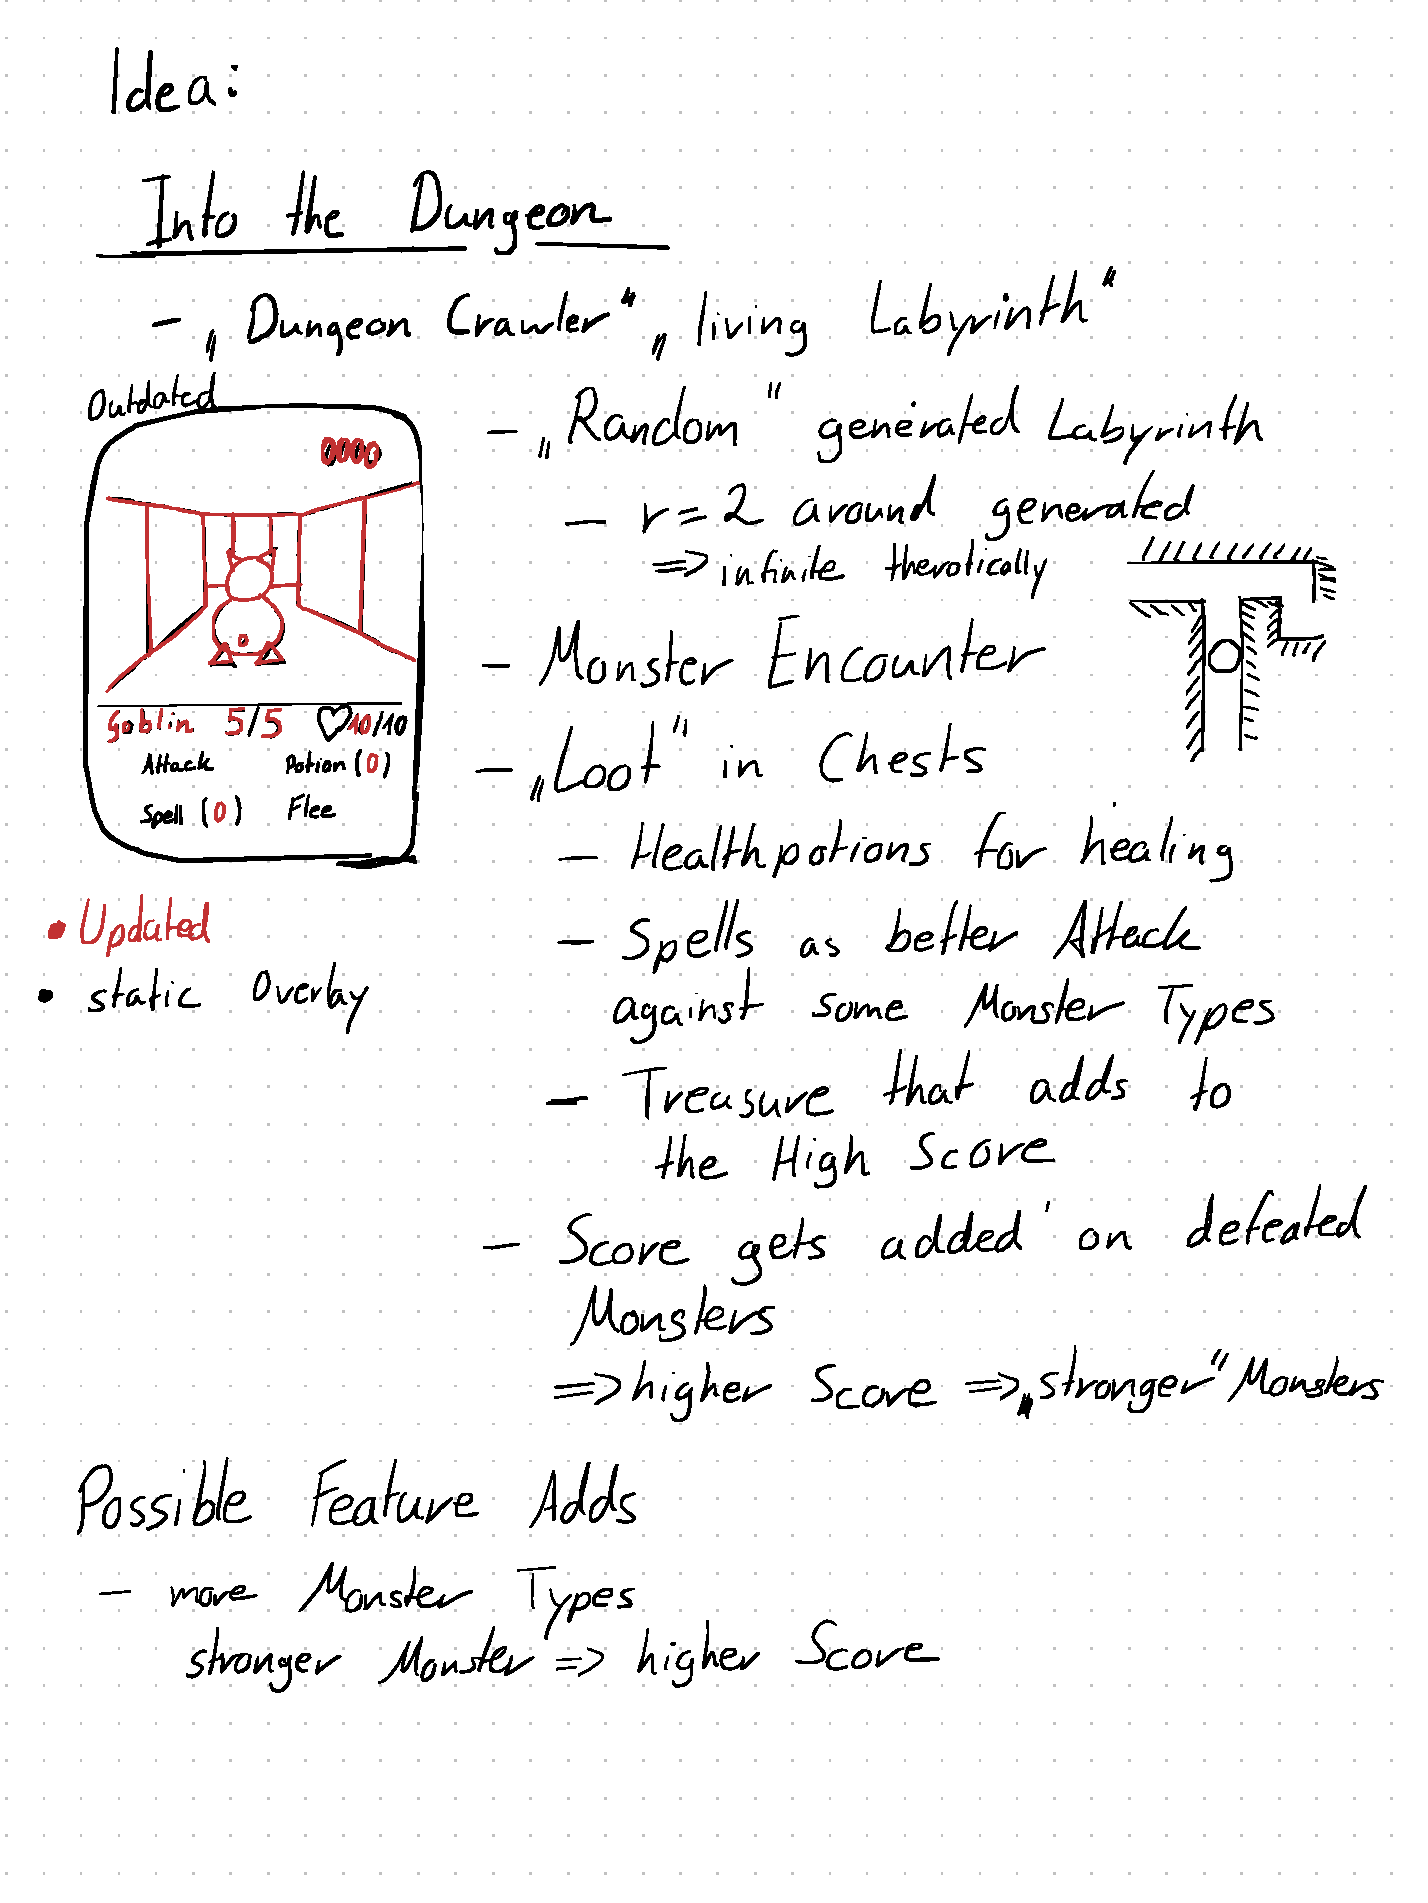 Idea:
Into the Dungeon
- „Dungeon Crawler" „living Labyrinth"
Outdated
0000
Goblin 5/5 ♡10/10
Attack Potion (0)
Spell (0) Flee
• Updated
• static Overlay
- „Random" generated Labyrinth
- r=2 around generated
=> infinite therotically
- Monster Encounter
- „Loot" in Chests
- Healthpotions for healing
- Spells as better Attack
against some Monster Types
- Treasure that adds to
the High Score
- Score gets added on defeated
Monsters
=> higher Score => „stronger" Monsters
Possible Feature Adds
- more Monster Types
stronger Monster => higher Score